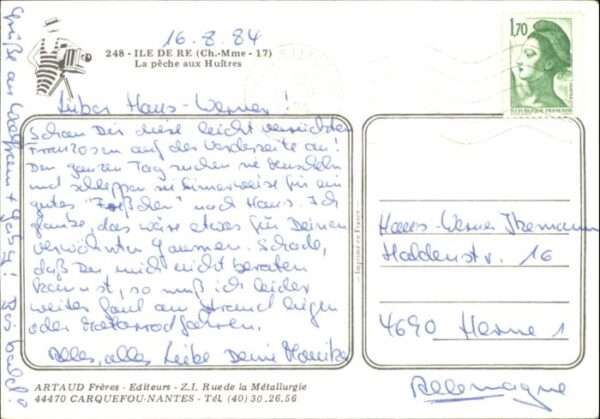 16.8.84
248 - ILE DE RE (Ch.-Mme - 17)
La pêche aux Huîtres
1,70
REPUBLIQUE FRANÇAISE
Lieber Hans-Werner!
Schau Dir diese leicht verrückten
Franzosen auf der Vorderseite an!
Den ganzen Tag suchen sie Muscheln
und schleppen sie eimerweise für ein
gutes "Freßchen" nach Haus. Ich
glaube, das wäre etwas für Deinen
verwöhnten Gaumen. Schade,
daß Du mich nicht beraten
kannst, so muß ich leider
weiter faul am Strand liegen
oder Motorradfahren.
Alles, alles Liebe Deine Monika
Grüße an Wolfram + Gaby! Bis bald!
Hans-Werner
Haldenstr. 16
4690 Herne 1
Allemagne
ARTAUD Frères - Editeurs - Z.I. Rue de la Métallurgie
44470 CARQUEFOU-NANTES - Tél (40) 30.26.56